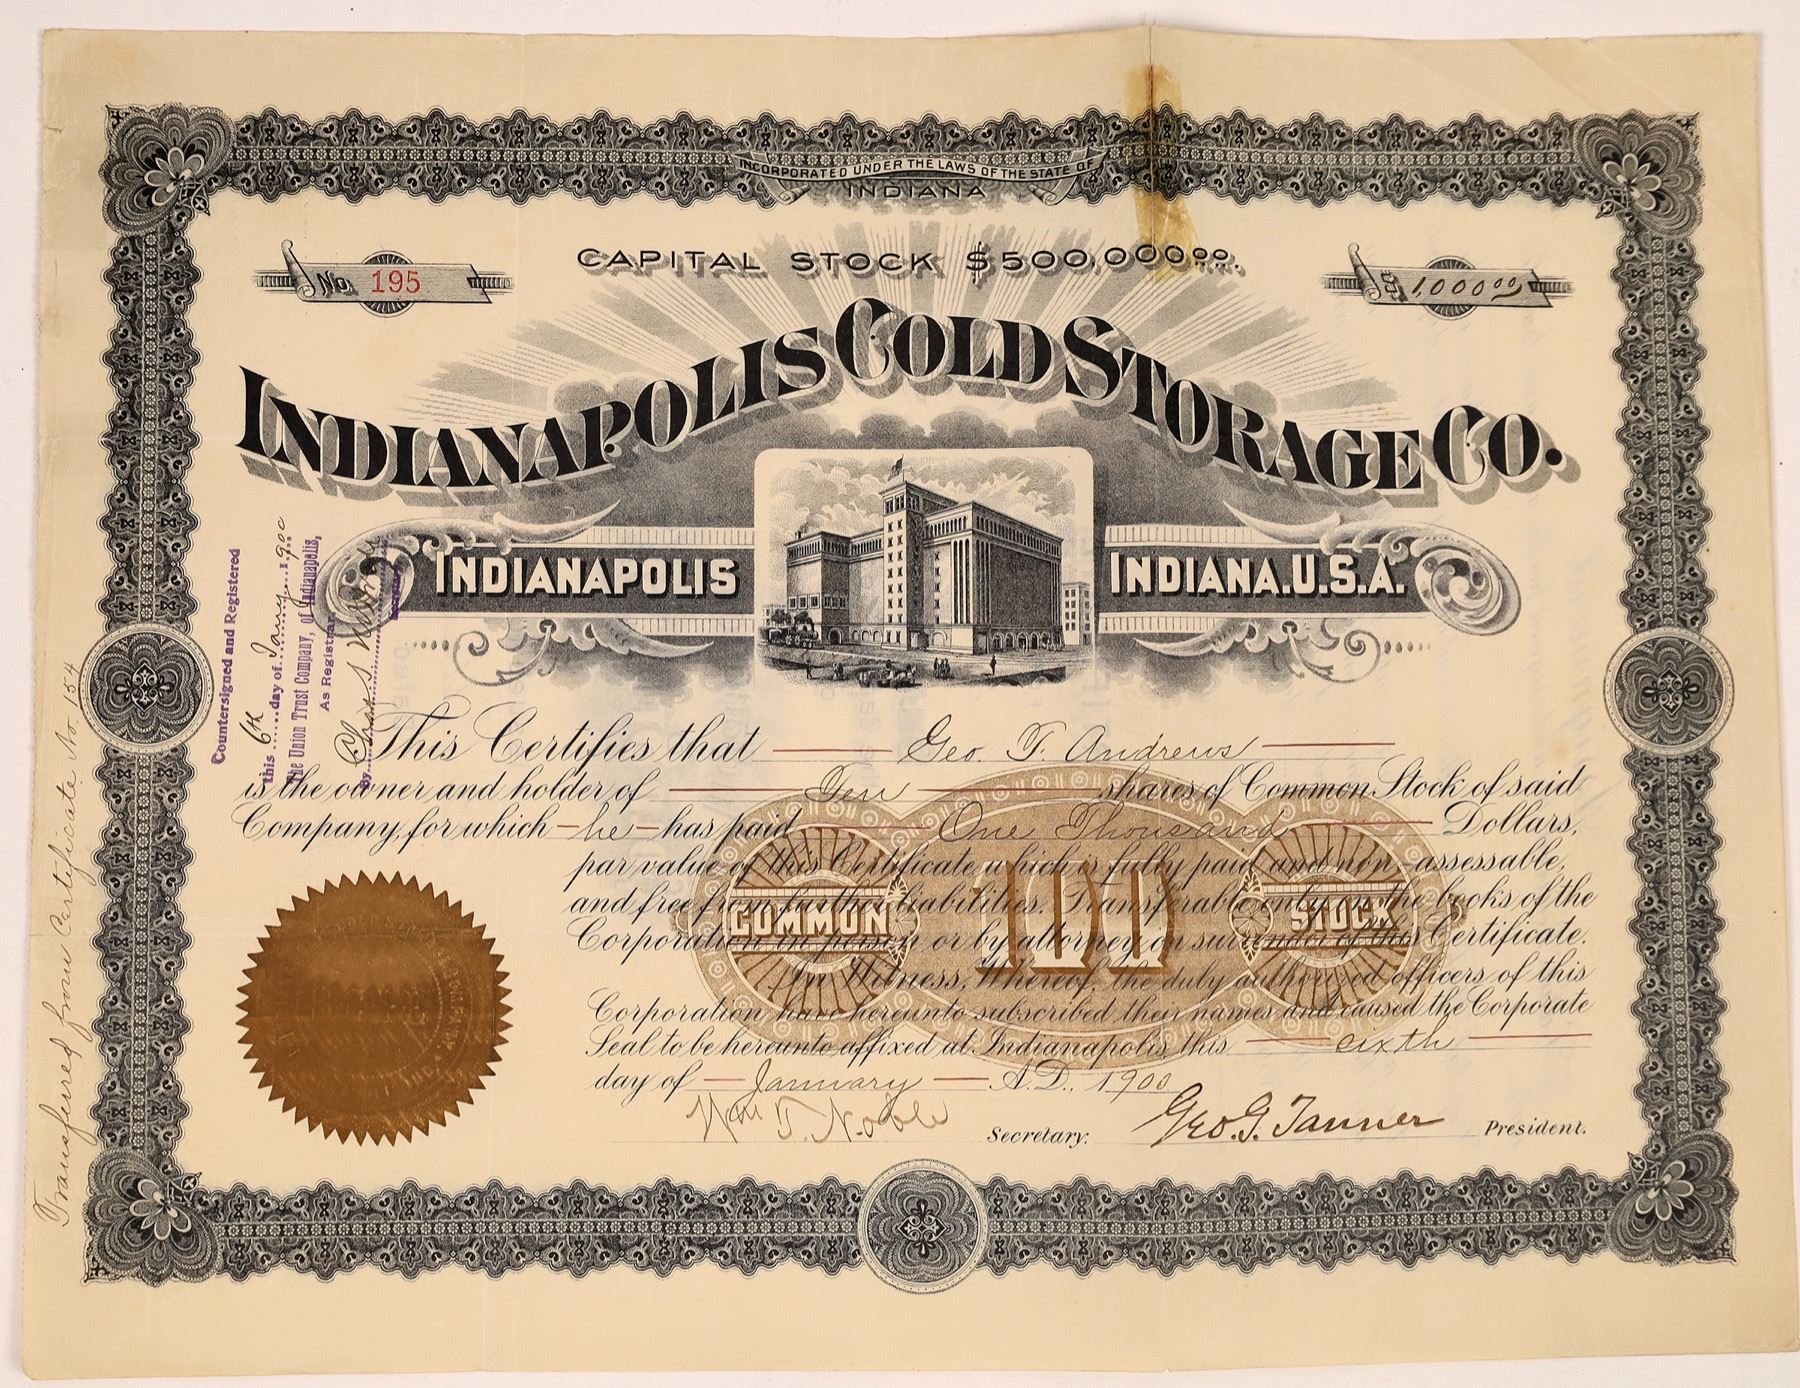 INCORPORATED UNDER THE LAWS OF THE STATE OF
INDIANA
CAPITAL STOCK $500,000.00.
No. 195
1,000.00
INDIANAPOLIS COLD STORAGE CO.
INDIANAPOLIS
INDIANA.U.S.A.
Countersigned and Registered
this 6th day of Jany 1900
The Union Trust Company, of Indianapolis,
As Registrar
by
Transferred from Certificate No. 154
This Certifies that Geo. T. Andrews
is the owner and holder of Ten shares of Common Stock of said
Company, for which he has paid One Thousand Dollars,
par value of this Certificate which is fully paid and non-assessable,
and free from further liabilities. Transferable only on the books of the
Corporation in person or by attorney on surrender of this Certificate.
In Witness Whereof, the duly authorized officers of this
Corporation have hereunto subscribed their names and caused the Corporate
Seal to be hereunto affixed at Indianapolis, this sixth
day of January A.D., 1900
COMMON 100 STOCK
Wm T. Noble Secretary. Geo. G. Tanner President.